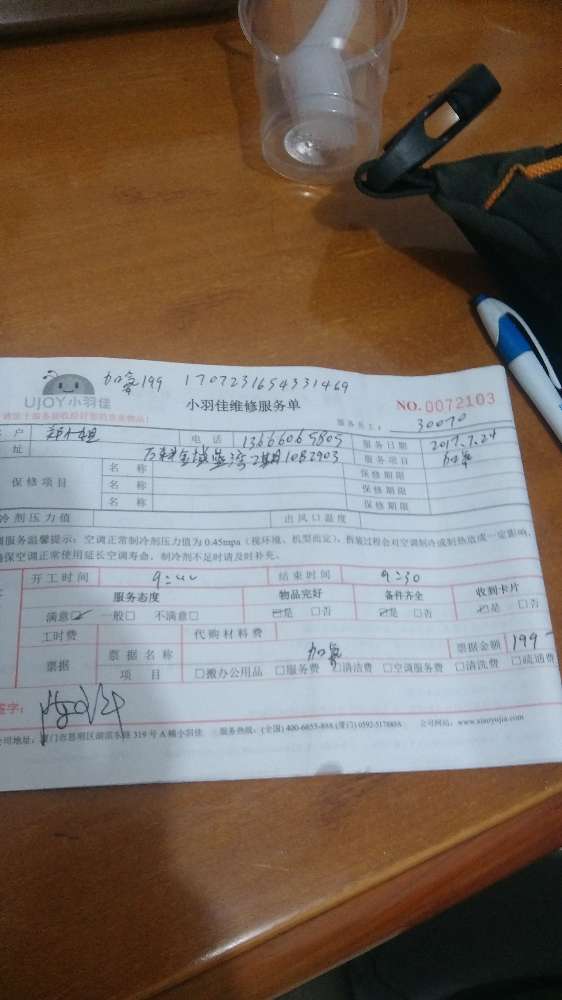 加氟199 1707231654331469
UJOY小羽佳
小羽佳维修服务单
NO. 0072103
服务员工: 30070
户 郑小姐 电话 13666065805 服务日期 2017.7.24
址 2期1082903 服务项目 加氟
保修项目 名称 保修期限
名称 保修期限
名称 保修期限
冷剂压力值 出风口温度
服务温馨提示:空调正常制冷剂压力值为0.45mpa(视环境、机型而定),拆装过程会对空调制冷或制热造成一定影响,
保空调正常使用延长空调寿命,制冷剂不足时请及时补充。
开工时间 结束时间 9:30
服务态度 物品完好 备件齐全 收到卡片
满意☑ 一般□ 不满意□ ☑是 □否 ☑是 □否 ☑是 □否
工时费 代购材料费
票据 票据名称 加氟 票据金额 199-
项目 □搬办公用品 □服务费 □清洁费 □空调服务费 □清洗费 □疏通费
签字:
公司地址:厦门市思明区湖滨东路319号A幢小羽佳 服务热线:(全国)400-6655-888 (厦门)0592-5178888 公司网站:www.xiaoyujia.com